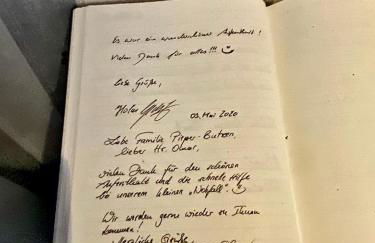 Es war ein wunderschöner Aufenthalt!
Vielen Dank für alles!!!
Liebe Grüße,
03. Mai 2020
Liebe Familie
lieber Hr. Omar,
vielen Dank für den schönen
Aufenthalt und die schnelle Hilfe
bei unserem kleinen „Notfall".
Wir werden gerne wieder zu Ihnen
kommen!
Herzliche Grüße